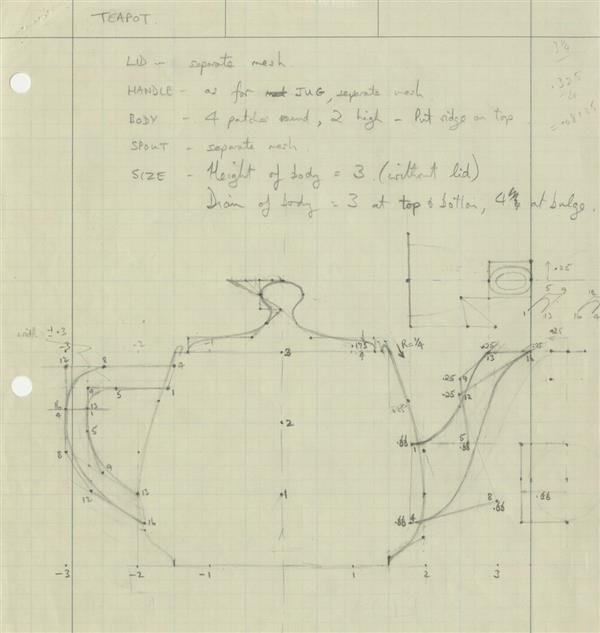 TEAPOT.
LID - separate mesh.
HANDLE - as for JUG, separate mesh
BODY - 4 patches round, 2 high - Put ridge on top.
SPOUT - separate mesh.
SIZE - Height of body = 3 (without lid)
Diam of body = 3 at top & bottom, 4 at bulge.
.325
.25
5 9
1 13
width = ±.3
-3 -2 -1 3 R=1/4 .25 13 16
12 8 4
9 5 1 .25 9
16 13 .25 12
2
5 .66 1 5 .66
8 9
12 13 1 8 .66 .66
16 .66 4
-3 -2 -1 1 2 3